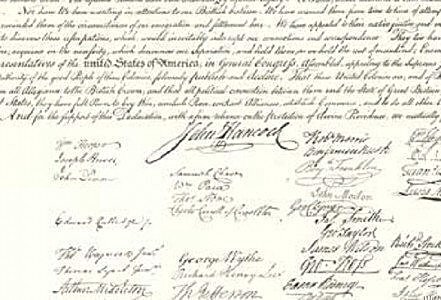 Nor have We been wanting in attentions to our British brethren. We have warned them from time to time of attem
reminded them of the circumstances of our emigration and settlement here. We have appealed to their native justice and
to disavow these usurpations, which would inevitably interrupt our connections and correspondence. They too have
acquiesce in the necessity, which denounces our Separation, and hold them, as we hold the rest of mankind, Enemies
resentatives of the united States of America, in General Congress, Assembled, appealing to the Supreme
Authority of the good People of these Colonies, solemnly publish and declare, That these United Colonies are, and of
all Allegiance to the British Crown, and that all political connection between them and the State of Great Britain
States, they have full Power to levy War, conclude Peace, contract Alliances, establish Commerce, and to do all other
And for the support of this Declaration, with a firm reliance on the protection of divine Providence, we mutually
John Hancock
Wm Hooper
Joseph Hewes
John Penn
Edward Rutledge
Thos Heyward Junr
Thomas Lynch Junr
Arthur Middleton
Samuel Chase
Wm Paca
Thos Stone
Charles Carroll of Carrollton
George Wythe
Richard Henry Lee
Th Jefferson
Robt Morris
Benjamin Rush
Benj Franklin
John Morton
Geo Clymer
Jas Smith
Geo Taylor
James Wilson
Geo Ross
Caesar Rodney